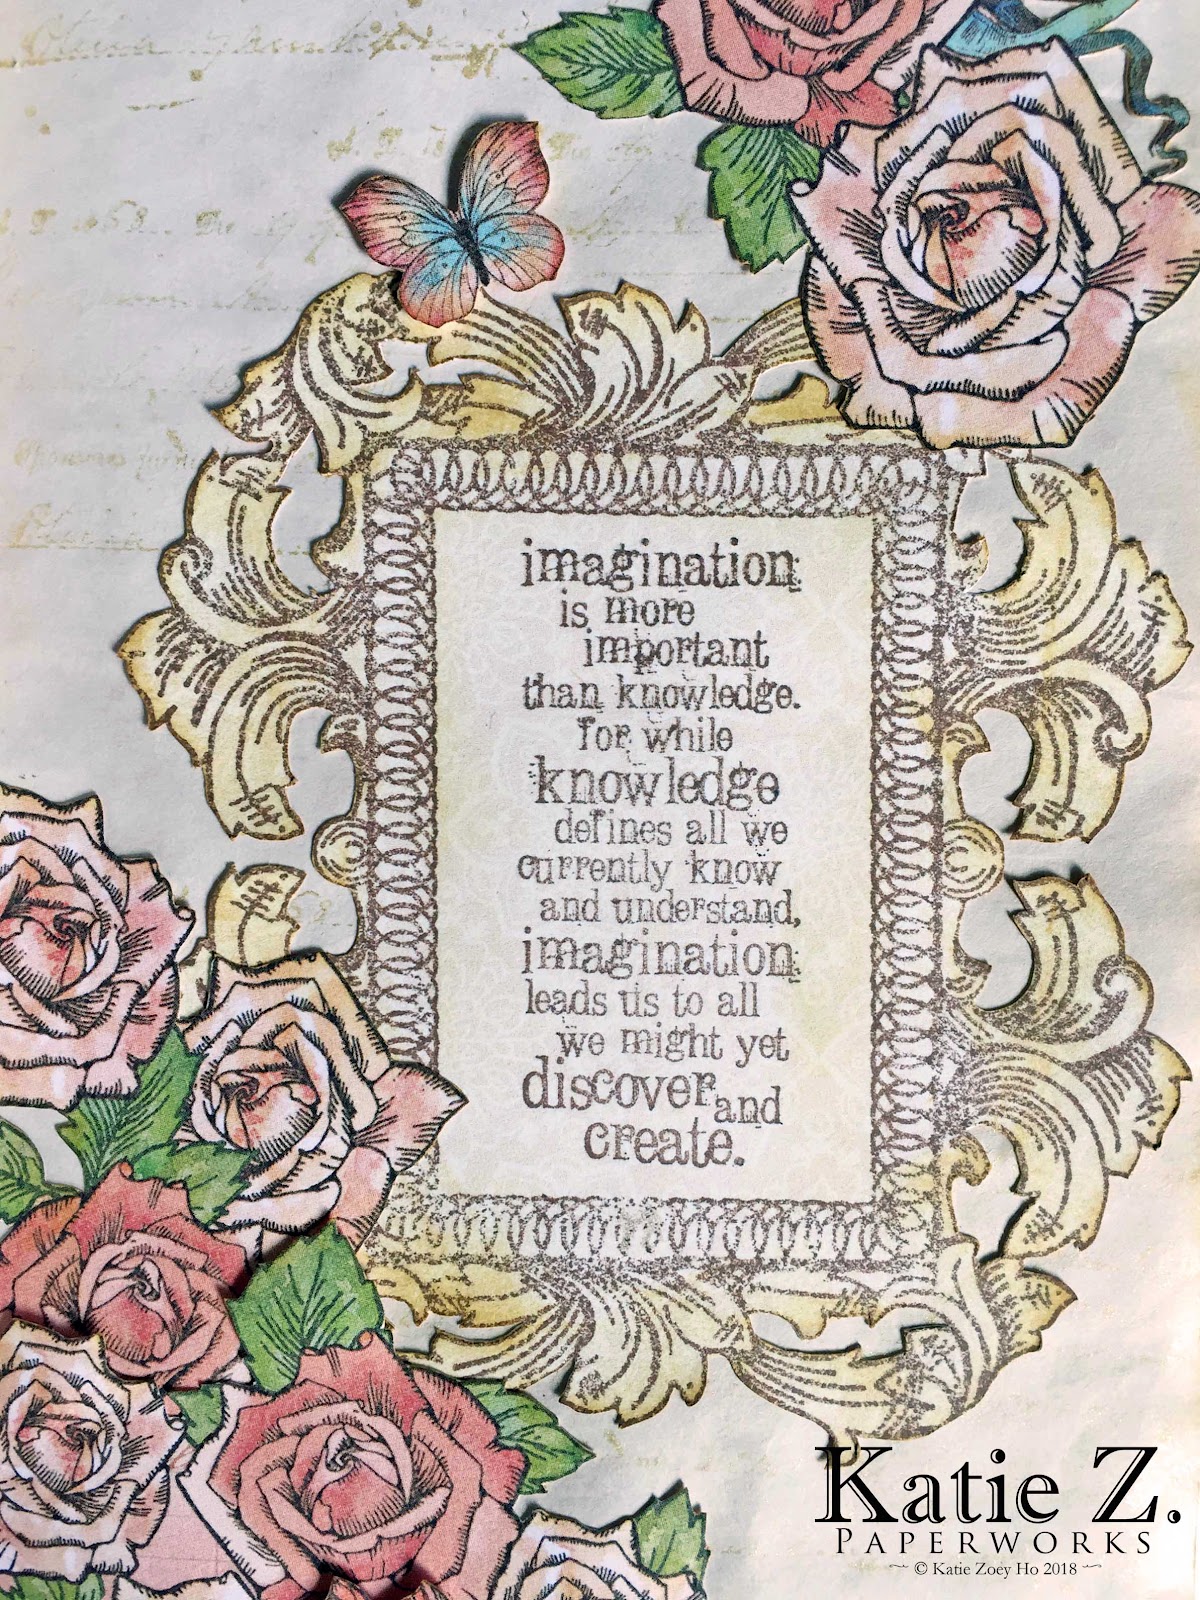 imagination
is more
important
than knowledge.
for while
knowledge
defines all we
currently know
and understand,
imagination
leads us to all
we might yet
discover and
create.
Katie Z.
PAPERWORKS
© Katie Zoey Ho 2018